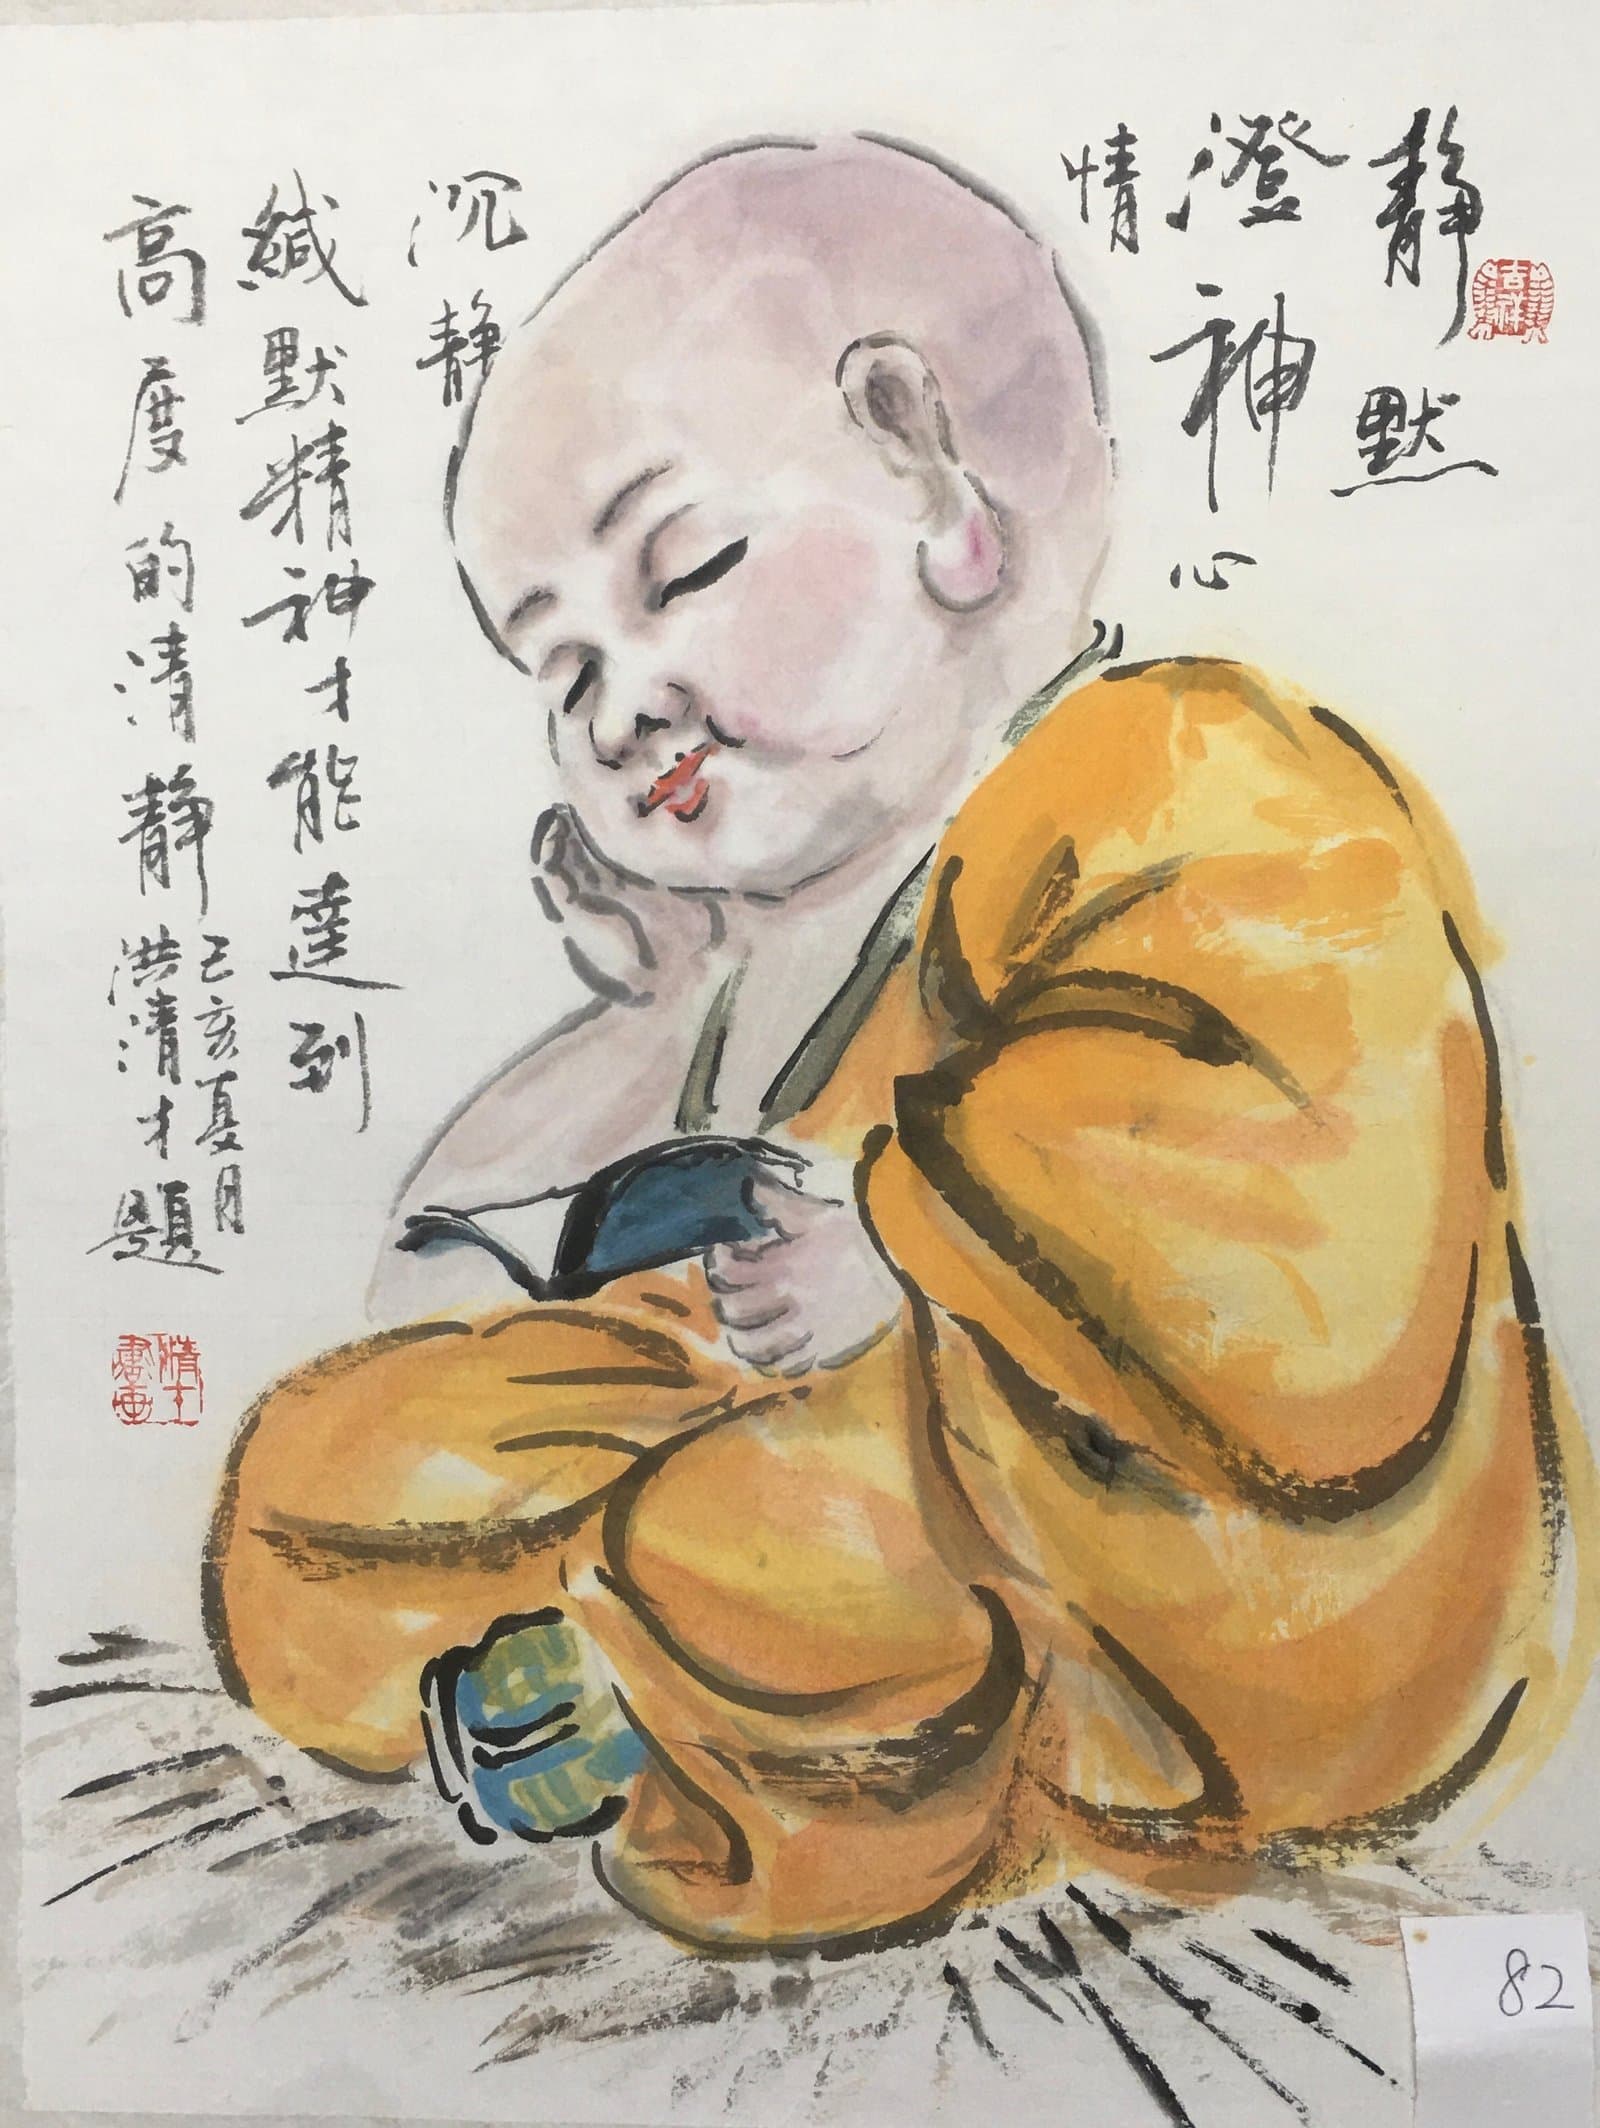 静默
澄神心
情
沉静
緘默精神才能達到
高度的清靜
己亥夏月
洪清才題
吉祥
82